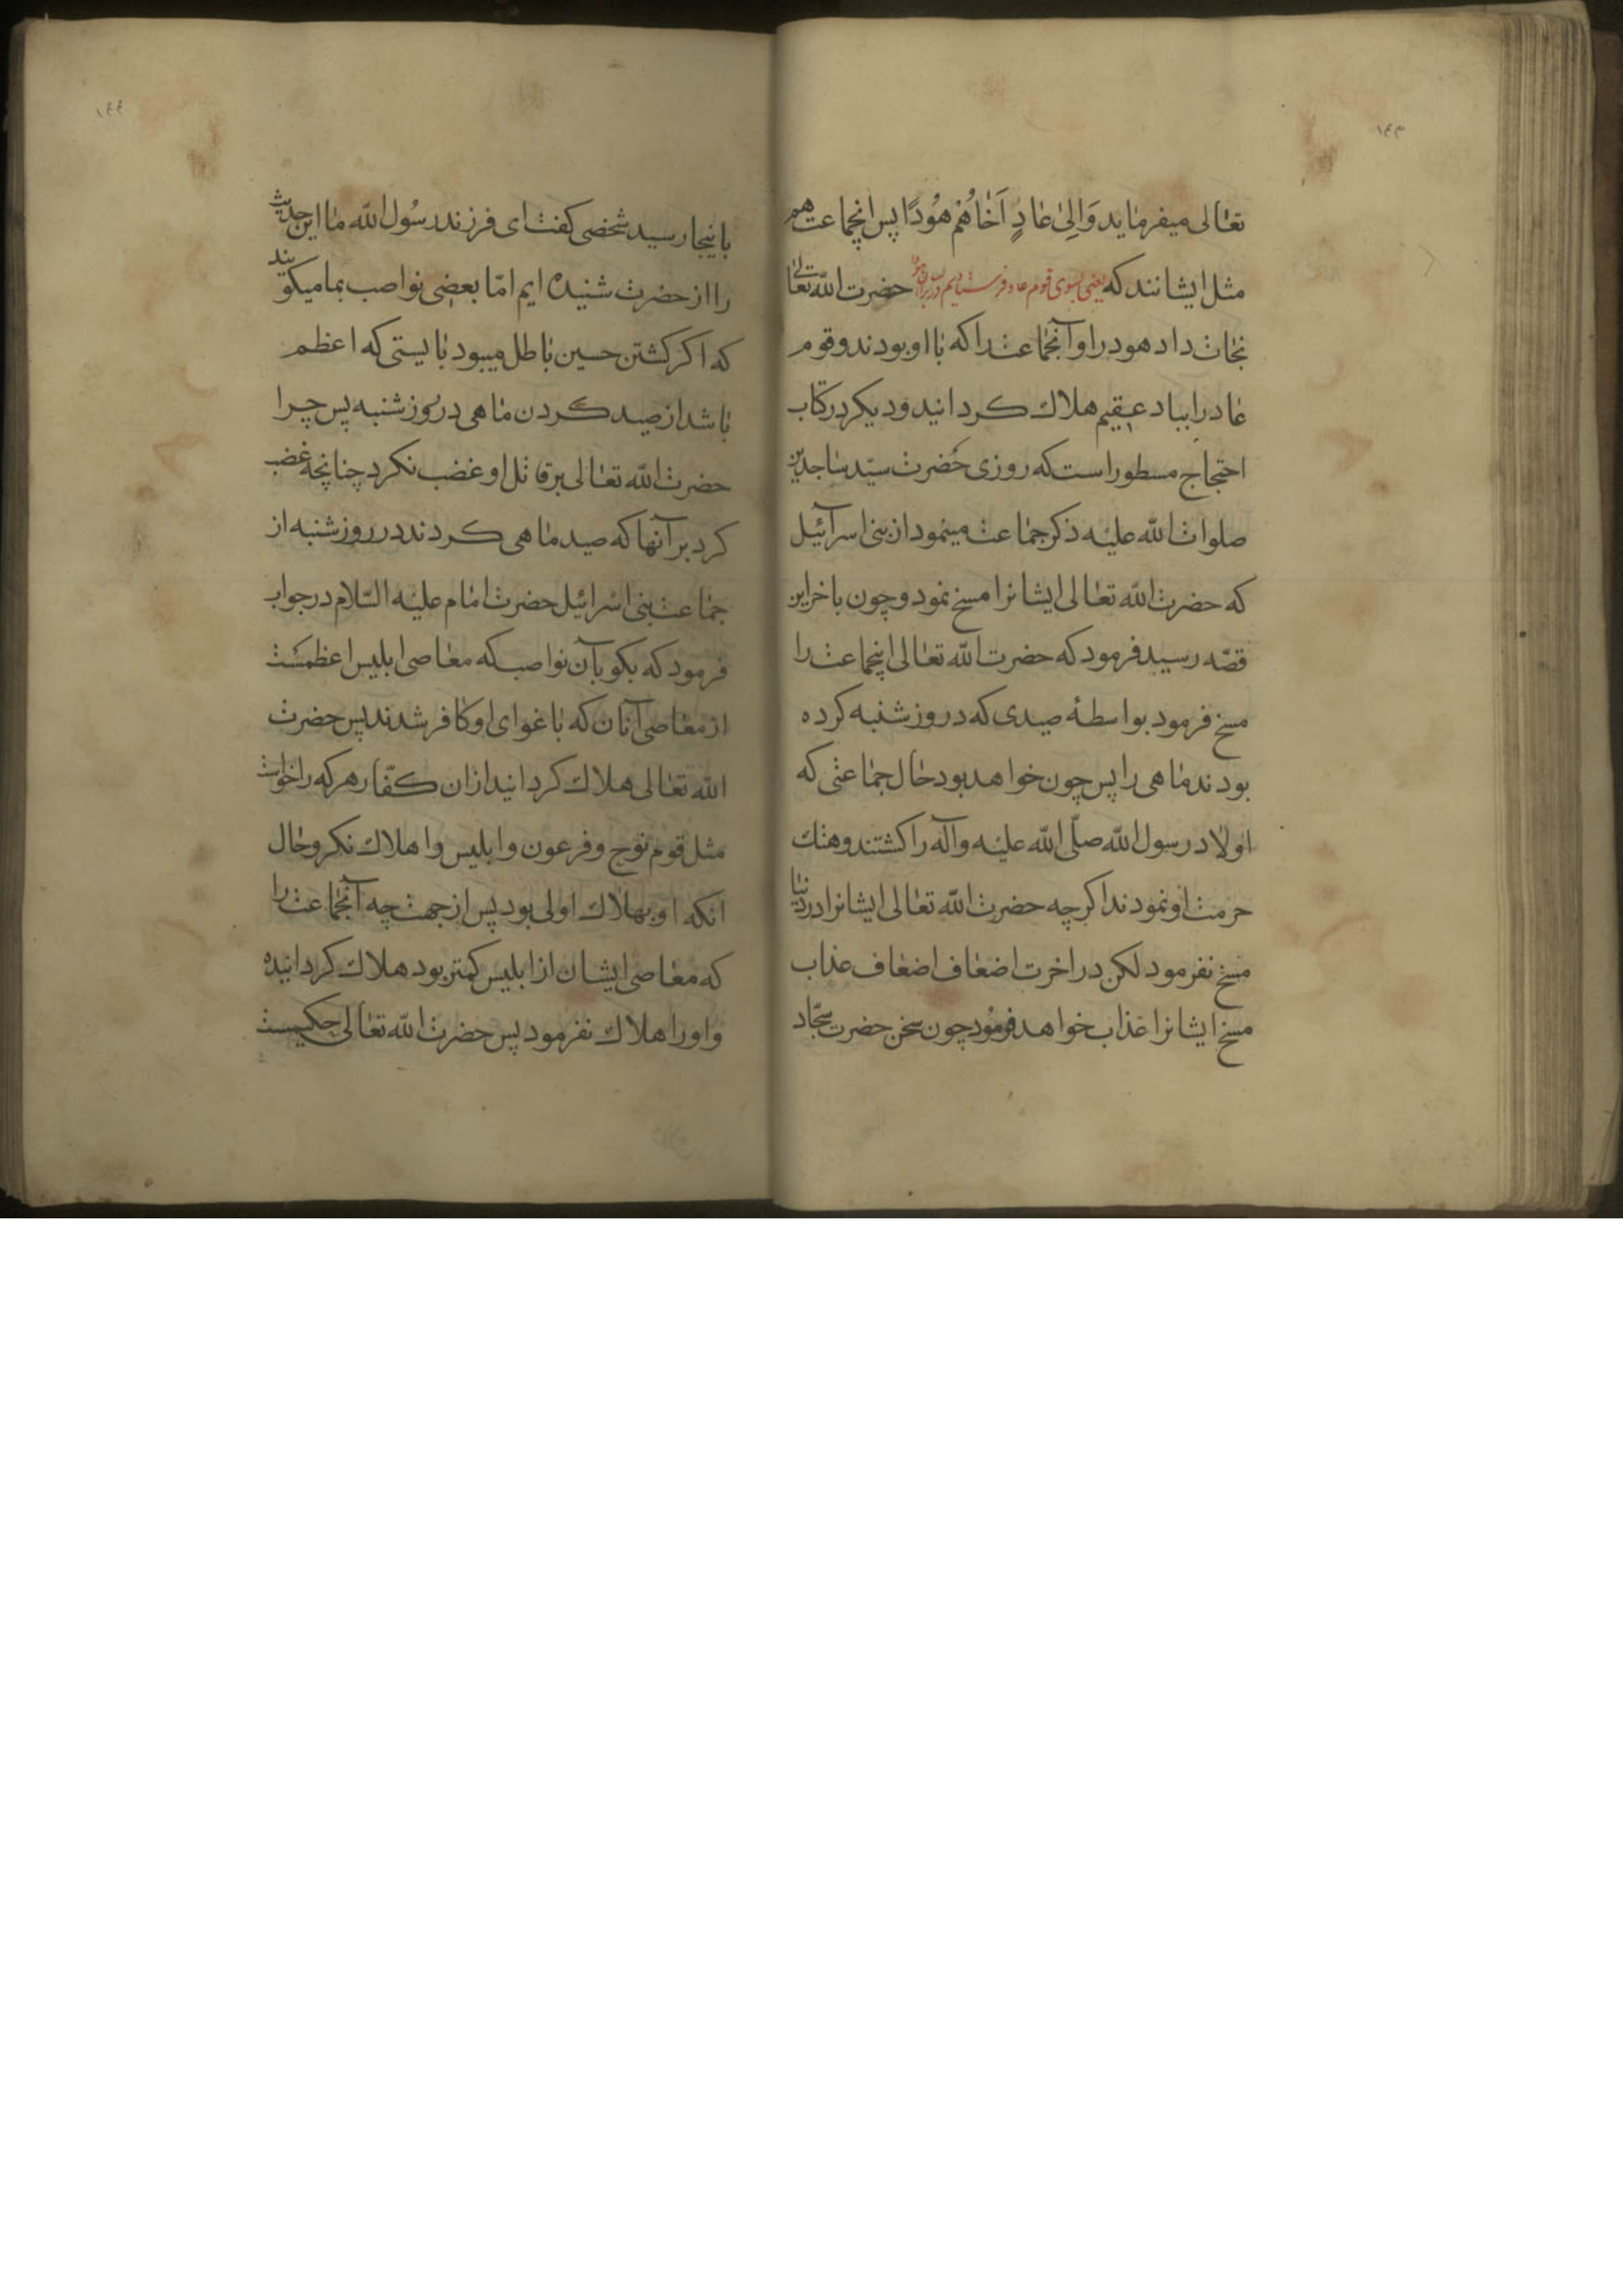 ۱۴۳
تعالی میفرماید وَاِلیٰ عَادٍ اَخَاهُمْ هُودًا پس اینجماعت هم
مثل ایشانند که یعنی بسوی قوم عاد فرستادیم برادر ایشان حضرت الله تعالی
نجات داد هود را و آنجماعت را که با او بودند و قوم
عاد را بباد عقیم هلاک کردانید و دیکر در کتاب
احتجاج مسطور است که روزی حضرت سیّد ساجدین
صلوات الله علیه ذکر جماعت مینمود از بنی اسرآئیل
که حضرت الله تعالی ایشانرا مسخ نمود و چون باخر این
قصّه رسید فرمود که حضرت الله تعالی اینجماعت را
مسخ فرمود بواسطهٔ صیدی که در روز شنبه کرده
بودند ماهی را پس چون خواهد بود حال جماعتی که
اولاد رسول الله صلّی الله علیه وآله را کشتند و هتک
حرمت او نمودند اکرچه حضرت الله تعالی ایشانرا در دنیا
مسخ نفرمود لکن در اخرت اضعاف اضعاف عذاب
مسخ ایشانرا عذاب خواهد فرمود چون سخن حضرت سجّاد
۱۴۴
باینجا رسید شخصی کفت ای فرزند رسول الله ما این حدیث
را از حضرت شنیده ایم امّا بعضی نواصب بما میکویند
که اکر کشتن حسین باطل میبود بایستی که اعظم
باشد از صید کردن ماهی در روز شنبه پس چرا
حضرت الله تعالی بر قاتل او غضب نکرد چنانچه غضب
کرد بر آنها که صید ماهی کردند در روز شنبه از
جماعت بنی اسرائیل حضرت امام علیه السّلام در جواب
فرمود که بکو بآن نواصب که معاصی ابلیس اعظمست
از معاصی آنان که باغوای او کافر شدند پس حضرت
الله تعالی هلاک کردانید ازان کفّار هر که را خواست
مثل قوم نوح و فرعون و ابلیس را هلاک نکرد و حال
انکه او بهلاک اولی بود پس از جهت چه آنجماعت را
که معاصی ایشان از ابلیس کمتر بود هلاک کردانیده
و او را هلاک نفرمود پس حضرت الله تعالی حکیمست